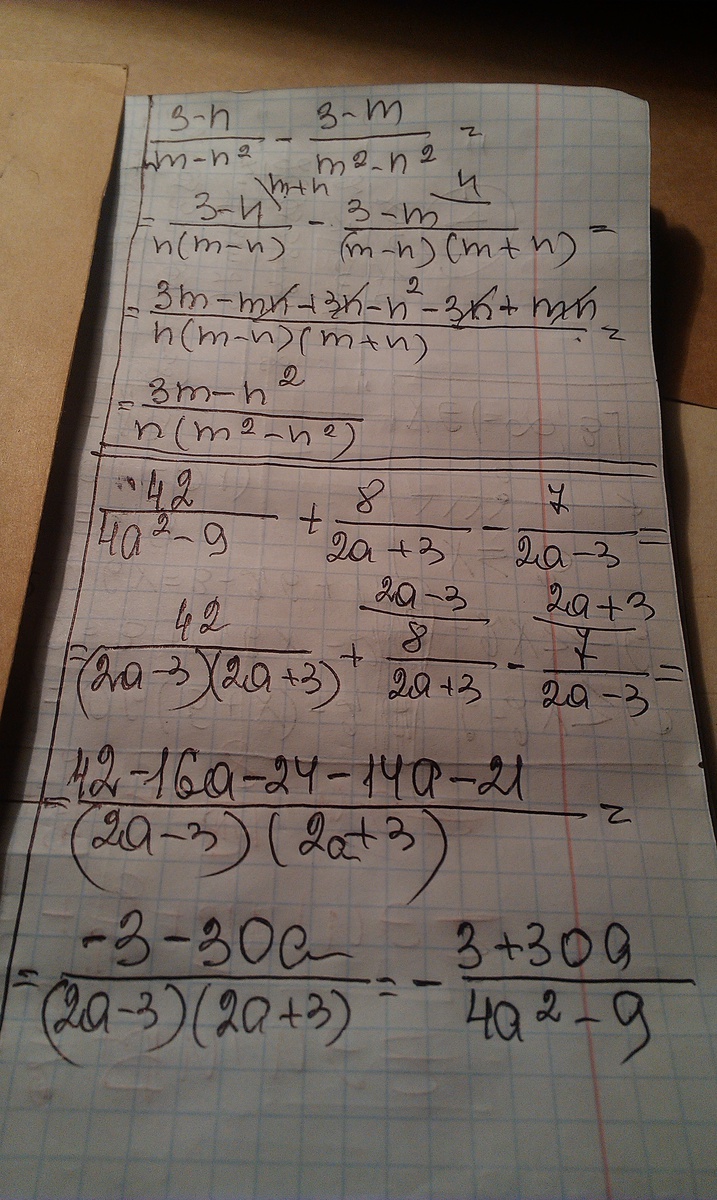 (3-n)/(m-n²) - (3-m)/(m²-n²) =
= (3-n)/(n(m-n)) \m+n - (3-m)/((m-n)(m+n)) \n =
= (3m-mn+3n-n²-3n+mn)/(n(m-n)(m+n)) =
= (3m-n²)/(n(m²-n²))
42/(4a²-9) + 8/(2a+3) - 7/(2a-3) =
= 42/((2a-3)(2a+3)) + 8/(2a+3) \2a-3 - 7/(2a-3) \2a+3 =
= (42-16a-24-14a-21)/((2a-3)(2a+3)) =
= (-3-30a)/((2a-3)(2a+3)) = - (3+30a)/(4a²-9)